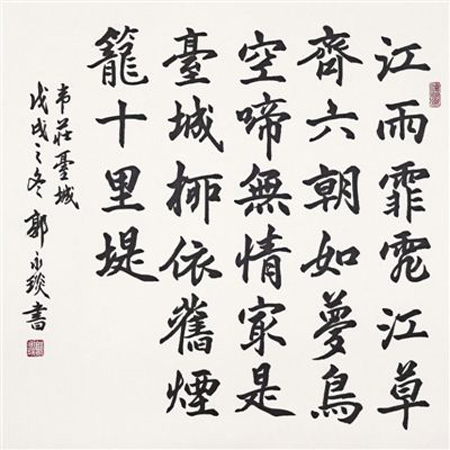 江雨霏霏江草
齊六朝如夢鳥
空啼無情冣是
臺城柳依舊煙
籠十里堤
韦莊臺城
戊戌之冬郭永琰書